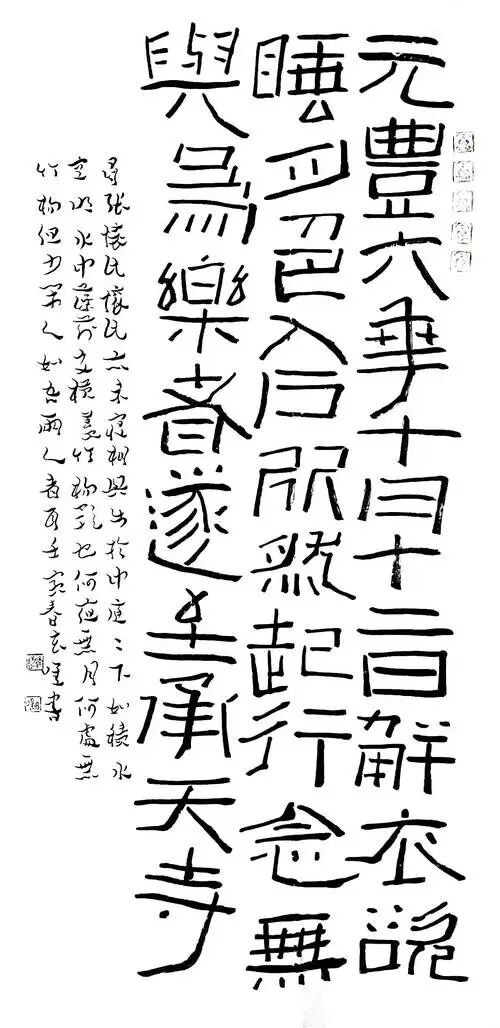 元豐六年十月十二日解衣欲
睡月色入戶欣然起行念無
與為樂者遂至承天寺
尋張懷民懷民亦未寢相與步於中庭〻下如積水
空明水中藻荇交橫蓋竹柏影也何夜無月何處無
竹柏但少閑人如吾兩人者耳壬寅春書